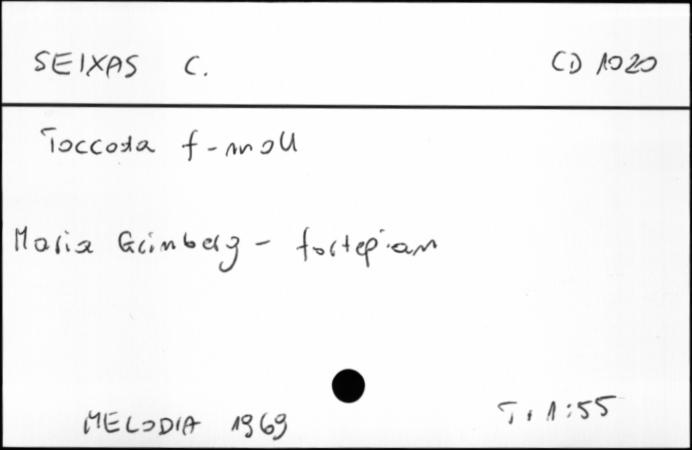 SEIXAS C. CD 1020
Toccata f-moll
Maria Grinberg - fortepian
MELODIA 1969 T. 1:55